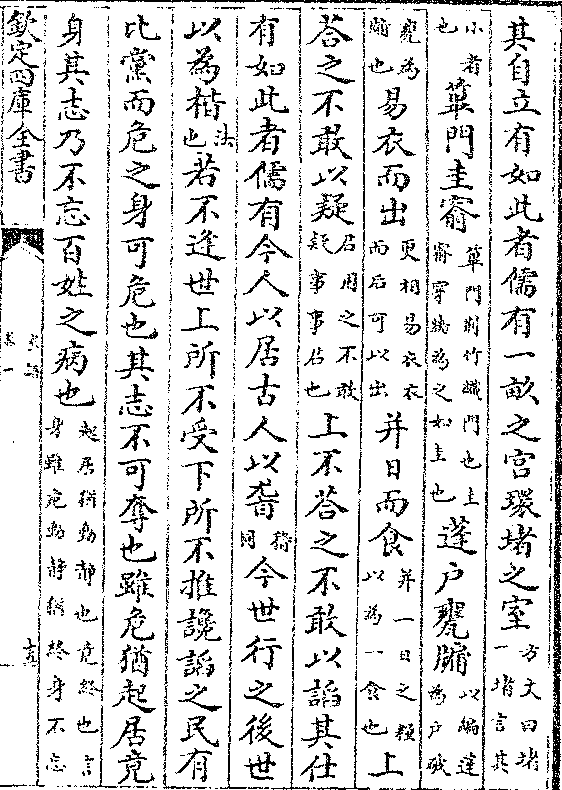 其自立有如此者儒有一畝之宫環堵之室方丈曰堵一堵言其
小者也蓽門圭窬蓽門荆竹織門也圭窬穿牆為之如圭也蓬户甕牖以編蓬為户破
甕為牖也易衣而出更相易衣衣而后可以出并日而食并一日之糧以為一食也上
荅之不敢以疑君用之不敢疑事事君也上不荅之不敢以謟其仕
有如此者儒有今人以居古人以稽同今世行之後世
以為楷法也若不逢世上所不受下所不推讒謟之民有
比黨而危之身可危也其志不可奪也雖危猶起居竟
身其志乃不忘百姓之病也起居猶動静也竟終也言身雖危動静猶終身不忘
欽定四庫全書
家語
卷一
十五